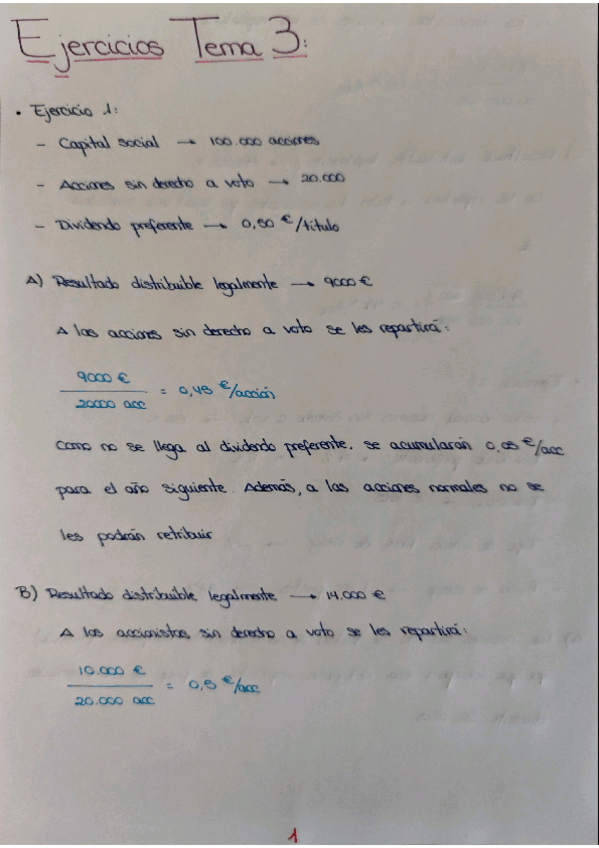 Ejercicios Tema 3:
• Ejercicio 1:
- Capital social → 100.000 acciones
- Acciones sin derecho a voto → 20.000
- Dividendo preferente → 0,50 €/título
A) Resultado distribuible legalmente → 9000 €
A las acciones sin derecho a voto se les repartirá:
9000 €
20000 acc
= 0,45 €/acción
Como no se llega al dividendo preferente. se acumularán 0,05 €/acc
para el año siguiente. Además, a las acciones normales no se
les podrán retribuir
B) Resultado distribuible legalmente → 14.000 €
A los accionistas, sin derecho a voto se les repartirá:
10.000 €
20.000 acc
= 0,5 €/acc
1